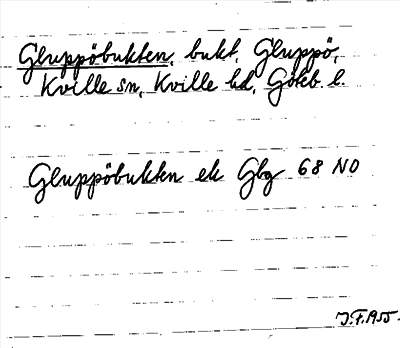 Gluppöbukten, bukt, Gluppö,
Kville sn, Kville hd, Göteb. l.
Gluppöbukten ek Gbg 68 NO
J.F. 1955.